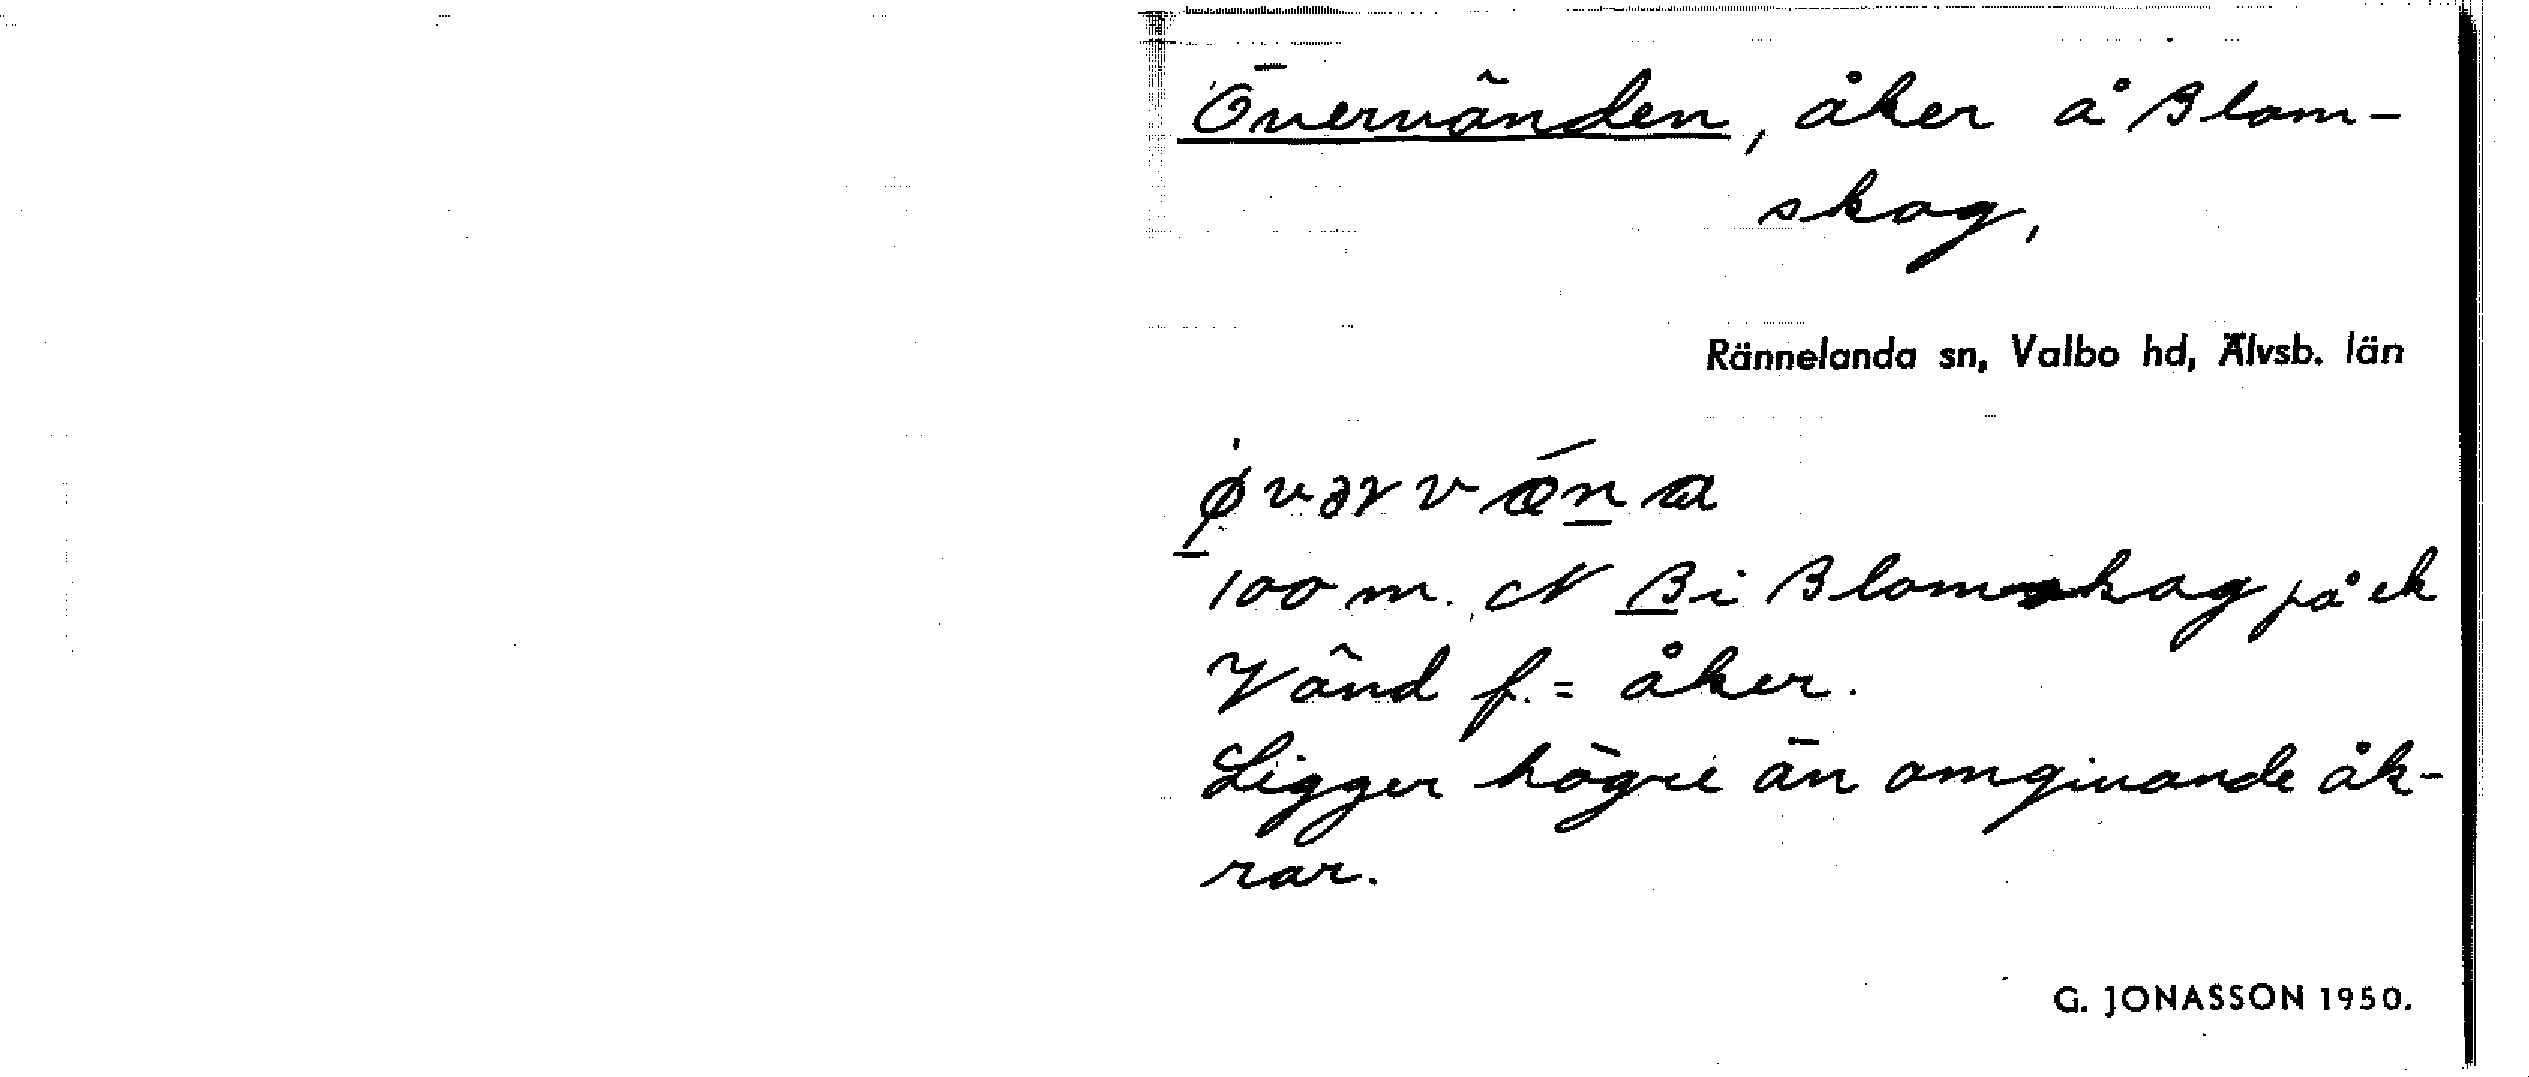 Övervänden, åker å Blom-
skog,
Rännelanda sn, Valbo hd, Älvsb. län
øvərvǽna
100 m. N B i Blomskog på ek
Vänd f. = åker.
Ligger högre än omgivande åk-
rar.
G. JONASSON 1950.